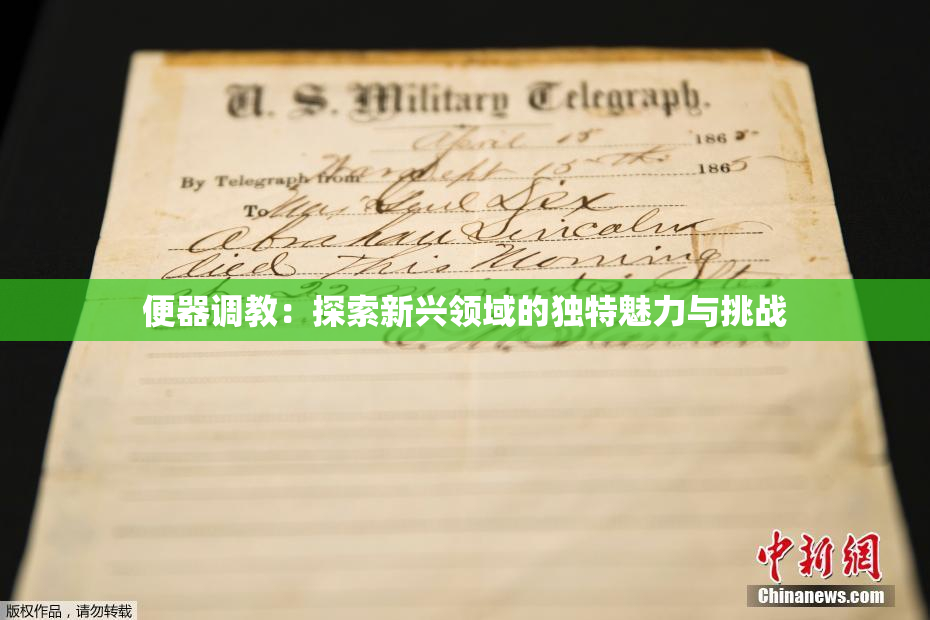 U. S. Military Telegraph.
April 15 1865
By Telegraph from War Dept 15th 1865
To Maj Genl Dix
Abraham Lincoln
died This Morning
at 22 minutes after
便器调教：探索新兴领域的独特魅力与挑战
中新网
Chinanews.com
版权作品，请勿转载